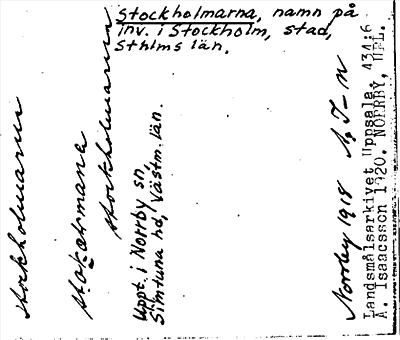 Stockholmarna, namn på
inv. i Stockholm, stad,
Sthlms län.
Stockholmarna
stokærmana
stockholmarna
Uppt. i Norrby sn,
Simtuna hd, Västm. län.
Norrby 1918 A. I-n
Landsmålsarkivet Uppsala, 434:6
A. Isaacsson 1920. NORRBY, UPL.